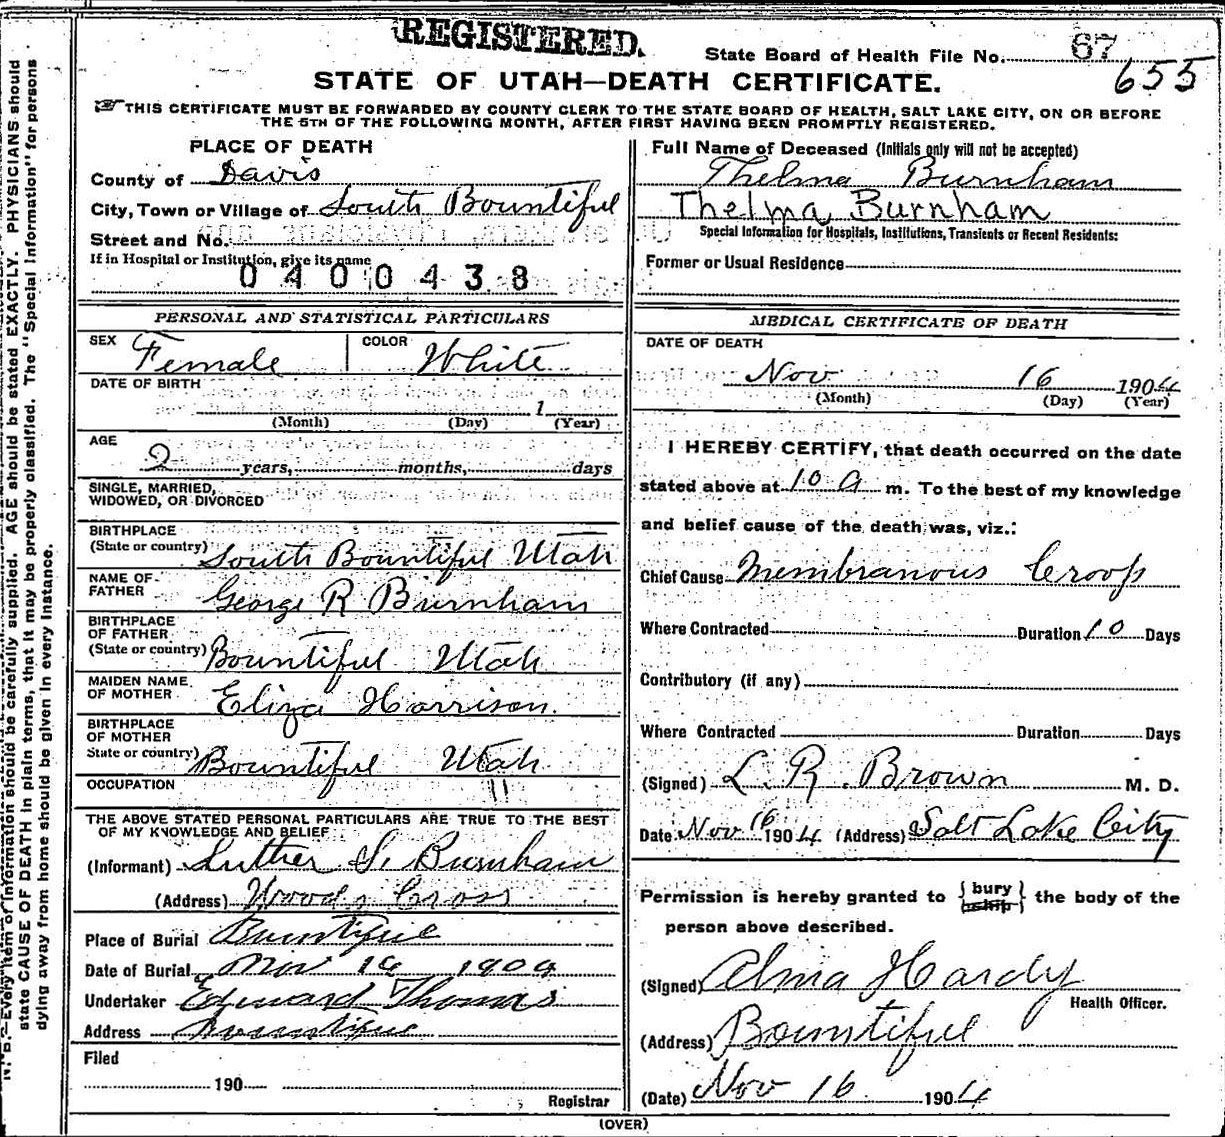 REGISTERED.
State Board of Health File No. 67
655
STATE OF UTAH—DEATH CERTIFICATE.
THIS CERTIFICATE MUST BE FORWARDED BY COUNTY CLERK TO THE STATE BOARD OF HEALTH, SALT LAKE CITY, ON OR BEFORE
THE 5TH OF THE FOLLOWING MONTH, AFTER FIRST HAVING BEEN PROMPTLY REGISTERED.
PLACE OF DEATH
County of Davis
City, Town or Village of South Bountiful
Street and No.
If in Hospital or Institution, give its name
0400438
Full Name of Deceased (Initials only will not be accepted)
Thelma Burnham
Thelma Burnham
Special Information for Hospitals, Institutions, Transients or Recent Residents:
Former or Usual Residence
PERSONAL AND STATISTICAL PARTICULARS
SEX Female COLOR White
DATE OF BIRTH
1
(Month) (Day) (Year)
AGE
2 years, months, days
SINGLE, MARRIED,
WIDOWED, OR DIVORCED
BIRTHPLACE
(State or country) South Bountiful Utah
NAME OF
FATHER George R Burnham
BIRTHPLACE
OF FATHER
(State or country) Bountiful Utah
MAIDEN NAME
OF MOTHER Eliza Harrison.
BIRTHPLACE
OF MOTHER
State or country) Bountiful Utah
OCCUPATION
THE ABOVE STATED PERSONAL PARTICULARS ARE TRUE TO THE BEST
OF MY KNOWLEDGE AND BELIEF
(Informant) Luther S. Burnham
(Address) Woods Cross
Place of Burial Bountiful
Date of Burial Nov 1904
Undertaker Edward Thomas
Address Bountiful
Filed
190
Registrar
MEDICAL CERTIFICATE OF DEATH
DATE OF DEATH
Nov 16 1904
(Month) (Day) (Year)
I HEREBY CERTIFY, that death occurred on the date
stated above at 10 a m. To the best of my knowledge
and belief cause of the death was, viz.:
Chief Cause Membranous Croop
Where Contracted Duration 10 Days
Contributory (if any)
Where Contracted Duration Days
(Signed) L. R. Brown M. D.
Date Nov 16 1904 (Address) Salt Lake City
Permission is hereby granted to {bury / ship} the body of the
person above described.
(Signed) Alma Hardy
Health Officer.
(Address) Bountiful
(Date) Nov 16 1904
(OVER)
N. B.—Every item of information should be carefully supplied. AGE should be stated EXACTLY. PHYSICIANS should
state CAUSE OF DEATH in plain terms, that it may be properly classified. The "Special Information" for persons
dying away from home should be given in every instance.